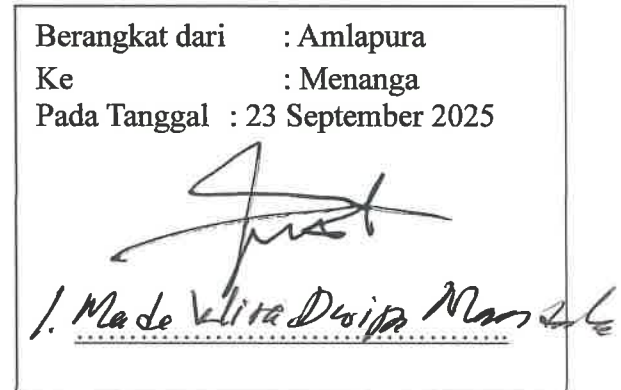 Berangkat dari : Amlapura
Ke : Menanga
Pada Tanggal : 23 September 2025
I. Made Wira Dwipa